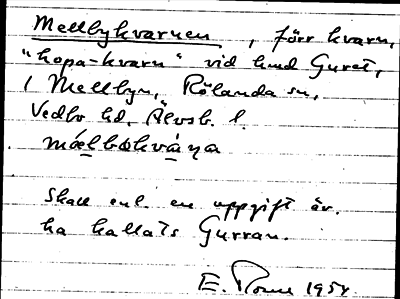 Mellbykvarnen, förr kvarn,
"hopa-kvarn" vid hmd Guret,
i Mellbyn, Rölanda sn,
Vedbo hd, Älvsb. l.
mǽlbokvána
Skall enl. en uppgift äv.
ha kallats Gurran.
E. 1954